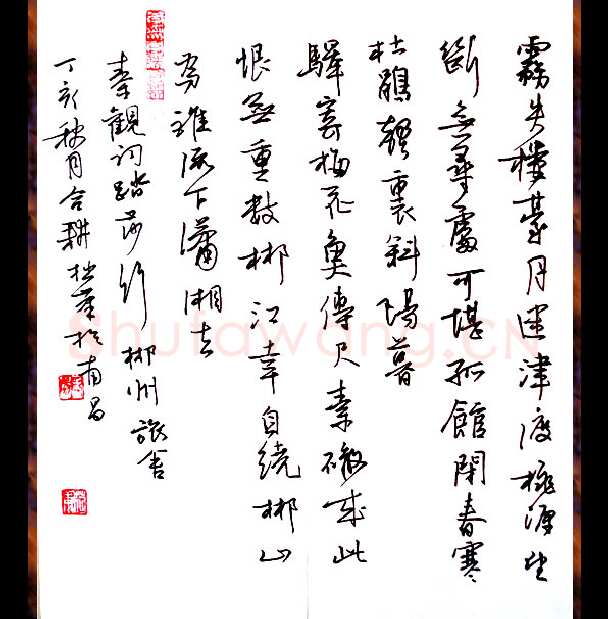 霧失樓臺月迷津渡桃源望
斷無尋處可堪孤館閉春寒
杜鵑聲裏斜陽暮
驛寄梅花魚傳尺素砌成此
恨無重數郴江幸自繞郴山
為誰流下瀟湘去
秦觀詞踏莎行 郴州旅舍
丁亥秋月合耕拙筆於南昌
Shufawang.CN